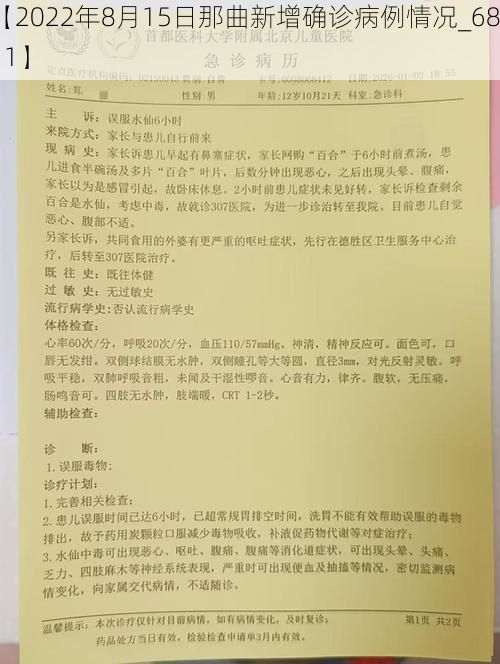 【2022年8月15日那曲新增确诊病例情况_68
1】
首都医科大学附属北京儿童医院
急诊病历
2026-01-02 18:55
姓名:郑 性别:男 年龄:12岁10月21天 科室:急诊科
主 诉:误服水仙6小时
来院方式:家长与患儿自行前来
现 病 史:家长诉患儿早起有鼻塞症状,家长网购“百合”于6小时前煮汤,患
儿进食半碗汤及多片“百合”叶片,后数分钟出现恶心,之后出现头晕、腹痛,
家长以为是感冒引起,故卧床休息。2小时前患儿症状未见好转,家长诉检查剩余
百合是水仙,考虑中毒,故就诊307医院,为进一步诊治转至我院。目前患儿自觉
恶心、腹部不适。
另家长诉,共同食用的外婆有更严重的呕吐症状,先行在德胜区卫生服务中心治
疗,后转至307医院治疗。
既 往 史:既往体健
过 敏 史:无过敏史
流行病学史:否认流行病学史
体格检查:
心率60次/分,呼吸20次/分,血压110/57mmHg。神清,精神反应可。面色可。口
唇无发绀。双侧球结膜无水肿,双侧瞳孔等大等圆,直径3mm,对光反射灵敏。呼
吸平稳,双肺呼吸音粗,未闻及干湿性啰音。心音有力,律齐。腹软,无压痛,
肠鸣音可。四肢无水肿,肢端暖,CRT 1-2秒。
辅助检查:
诊 断:
1.误服毒物;
诊疗计划:
1.完善相关检查;
2.患儿误服时间已达6小时,已超常规胃排空时间,洗胃不能有效帮助误服的毒物
排出,故予药用炭颗粒口服减少毒物吸收,补液促药物代谢等对症治疗;
3.水仙中毒可出现恶心、呕吐、腹痛、腹痛等消化道症状,可出现头晕、头痛、
乏力、四肢麻木等神经系统表现,严重时可出现便血及抽搐等情况,密切监测病
情变化,向家属交代病情,不适随诊。
温馨提示:本次诊疗仅针对目前病情,如有病情变化,及时复诊;
药品处方当日有效,检验检查申请单3月内有效。
第1页 共2页